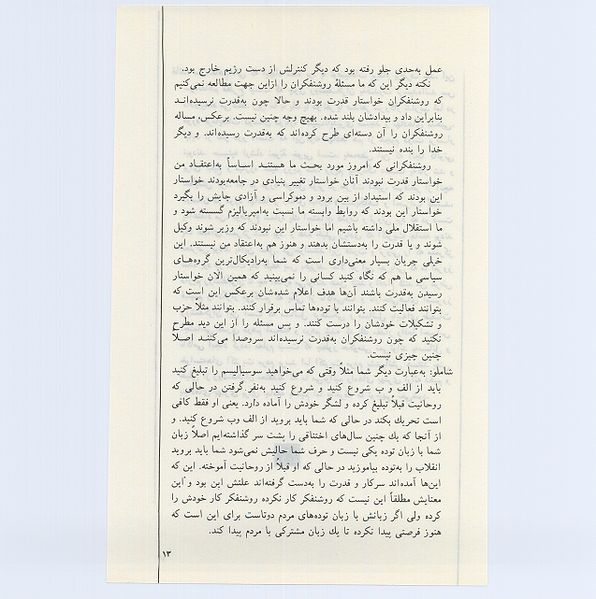 عمل به‌حدی جلو رفته بود که دیگر کنترلش از دست رژیم خارج بود.
نکته دیگر این که ما مسئلهٔ روشنفکران را ازاین جهت مطالعه نمی‌کنیم
که روشنفکران خواستار قدرت بودند و حالا چون به‌قدرت نرسیده‌اند
بنابراین داد و بیدادشان بلند شده. بهیچ وجه چنین نیست. برعکس، مساله
روشنفکران را آن دسته‌ای طرح کرده‌اند که به‌قدرت رسیده‌اند. و دیگر
خدا را بنده نیستند.
روشنفکرانی که امروز مورد بحث ما هستند اساساً به‌اعتقاد من
خواستار قدرت نبودند آنان خواستار تغییر بنیادی در جامعه‌بودند خواستار
این بودند که استبداد از بین برود و دموکراسی و آزادی جایش را بگیرد
خواستار این بودند که روابط وابسته ما نسبت به‌امپریالیزم گسسته شود و
ما استقلال ملی داشته باشیم اما خواستار این نبودند که وزیر شوند وکیل
شوند و یا قدرت را به‌دستشان بدهند و هنوز هم به‌اعتقاد من نیستند. این
خیلی جریان بسیار معنی‌داری است که شما به‌رادیکال‌ترین گروه‌های
سیاسی ما هم که نگاه کنید کسانی را نمی‌بینید که همین الان خواستار
رسیدن به‌قدرت باشند آن‌ها هدف اعلام شده‌شان برعکس این است که
بتوانند فعالیت کنند. بتوانند با توده‌ها تماس برقرار کنند. بتوانند مثلاً حزب
و تشکیلات خودشان را درست کنند. و پس مسئله را از این دید مطرح
نکنید که چون روشنفکران به‌قدرت نرسیده‌اند سروصدا می‌کنند اصلاً
چنین چیزی نیست.
شاملو: به‌عبارت دیگر شما مثلاً وقتی که می‌خواهید سوسیالیسم را تبلیغ کنید
باید از الف و ب شروع کنید و شروع کنید به‌نفر گرفتن در حالی که
روحانیت قبلاً تبلیغ کرده و لشگر خودش را آماده دارد. یعنی او فقط کافی
است تحریك بکند در حالی که شما باید بروید از الف وب شروع کنید. و
از آنجا که یك چنین سال‌های اختناقی را پشت سر گذاشته‌ایم اصلاً زبان
شما با زبان توده یکی نیست و حرف شما حالیش نمی‌شود شما باید بروید
انقلاب را به‌توده بیاموزید در حالی که او قبلاً از روحانیت آموخته. این که
این‌ها آمده‌اند سرکار و قدرت را به‌دست گرفته‌اند علتش این بود و این
معنایش مطلقاً این نیست که روشنفکر کار نکرده روشنفکر کار خودش را
کرده ولی اگر زبانش با زبان توده‌های مردم دوتاست برای این است که
هنوز فرصتی پیدا نکرده تا یك زبان مشترکی با مردم پیدا کند.
۱۳